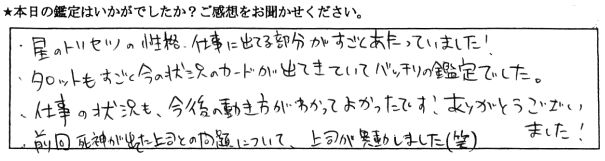 ★本日の鑑定はいかがでしたか？ご感想をお聞かせください。
・星のトリセツの性格、仕事に出てる部分がすごくあたっていました！
・タロットもすごく今の状況のカードが出てきていてバッチリの鑑定でした。
・仕事の状況も、今後の動き方がわかってよかったです！ありがとうございい
ました！
・前回死神が出た上司との問題について、上司が異動しました(笑)